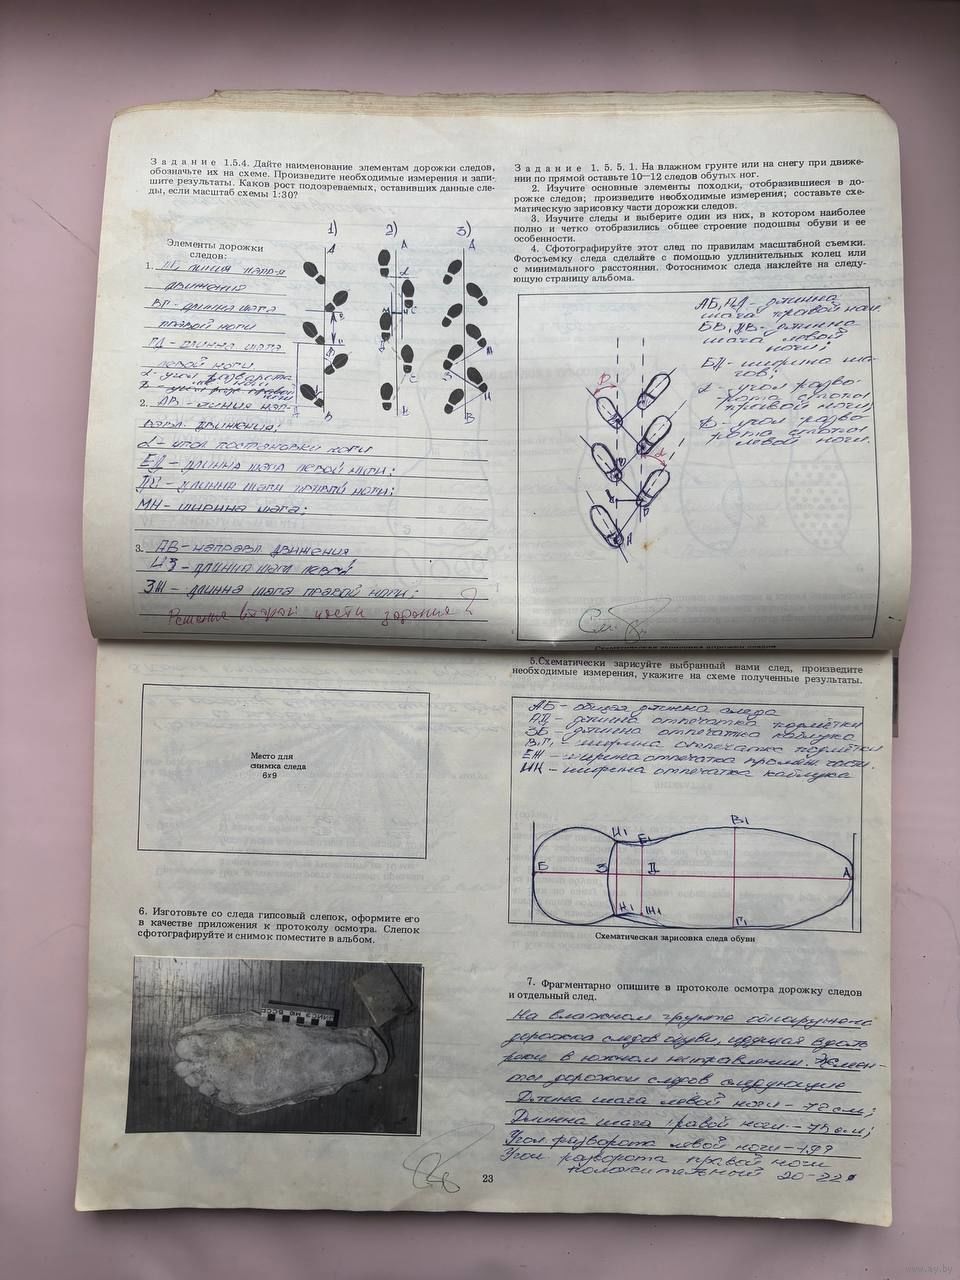 З а д а н и е 1.5.4. Дайте наименование элементам дорожки следов,
обозначьте их на схеме. Произведите необходимые измерения и запи-
шите результаты. Каков рост подозреваемых, оставивших данные сле-
ды, если масштаб схемы 1:30?
1) 2) 3)
Элементы дорожки
следов:
1. линия напр-я
движения
ВГ - длинна шага
правой ноги
ГД - длинна шага
левой ноги
α - угол разворота
2. АВ - линия нап-
равл. движения;
α - угол постановки ноги
ЕД - длинна шага левой ноги;
длинна шага правой ноги;
МН - ширина шага;
3. АВ - направл. движения
ИЗ - длинна шага левой
ЗЖ - длинна шага правой ноги;
Решение второй части задания ?
З а д а н и е 1. 5. 5. 1. На влажном грунте или на снегу при движе-
нии по прямой оставьте 10—12 следов обутых ног.
2. Изучите основные элементы походки, отобразившиеся в до-
рожке следов; произведите необходимые измерения; составьте схе-
матическую зарисовку части дорожки следов.
3. Изучите следы и выберите один из них, в котором наиболее
полно и четко отобразились общее строение подошвы обуви и ее
особенности.
4. Сфотографируйте этот след по правилам масштабной съемки.
Фотосъемку следа сделайте с помощью удлинительных колец или
с минимального расстояния. Фотоснимок следа наклейте на следу-
ющую страницу альбома.
длинна
шага правой ноги
длинна
шага левой
ноги;
БД - ширина ша-
гов;
α - угол разво-
рота стопы
правой ноги;
угол разво-
рота стопы
левой ноги.
Схематическая зарисовка дорожки следов
Место для
снимка следа
6х9
6. Изготовьте со следа гипсовый слепок, оформите его
в качестве приложения к протоколу осмотра. Слепок
сфотографируйте и снимок поместите в альбом.
5.Схематически зарисуйте выбранный вами след, произведите
необходимые измерения, укажите на схеме полученные результаты.
АБ - общая длинна следа
АД - длинна отпечатка подмётки
ЗБ - длинна отпечатка каблука
В1Г1 - ширина отпечатка подмётки
ЕЖ - ширина отпечатка промеж. части.
ИК - ширина отпечатка каблука
И1 Е1 В1
Б З Д А
К1 Ж1 Г1
Схематическая зарисовка следа обуви
7. Фрагментарно опишите в протоколе осмотра дорожку следов
и отдельный след.
На влажном грунте обнаружена
дорожка следов обуви, идущая вдоль
реки в южном направлении. Элемен-
ты дорожки следов следующие
Длина шага левой ноги - 78 см;
Длинна шага правой ноги - 75 см;
Угол разворота левой ноги - 19?
Угол разворота правой ноги
положительный 20-22°
23
www.ay.by